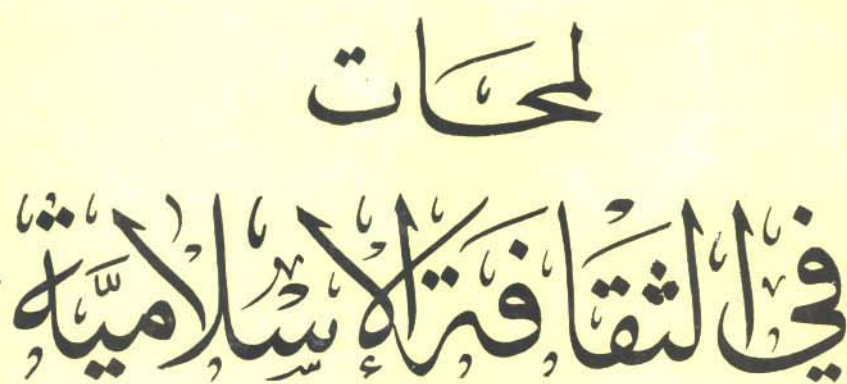 لمحات
في الثقافة الإسلامية